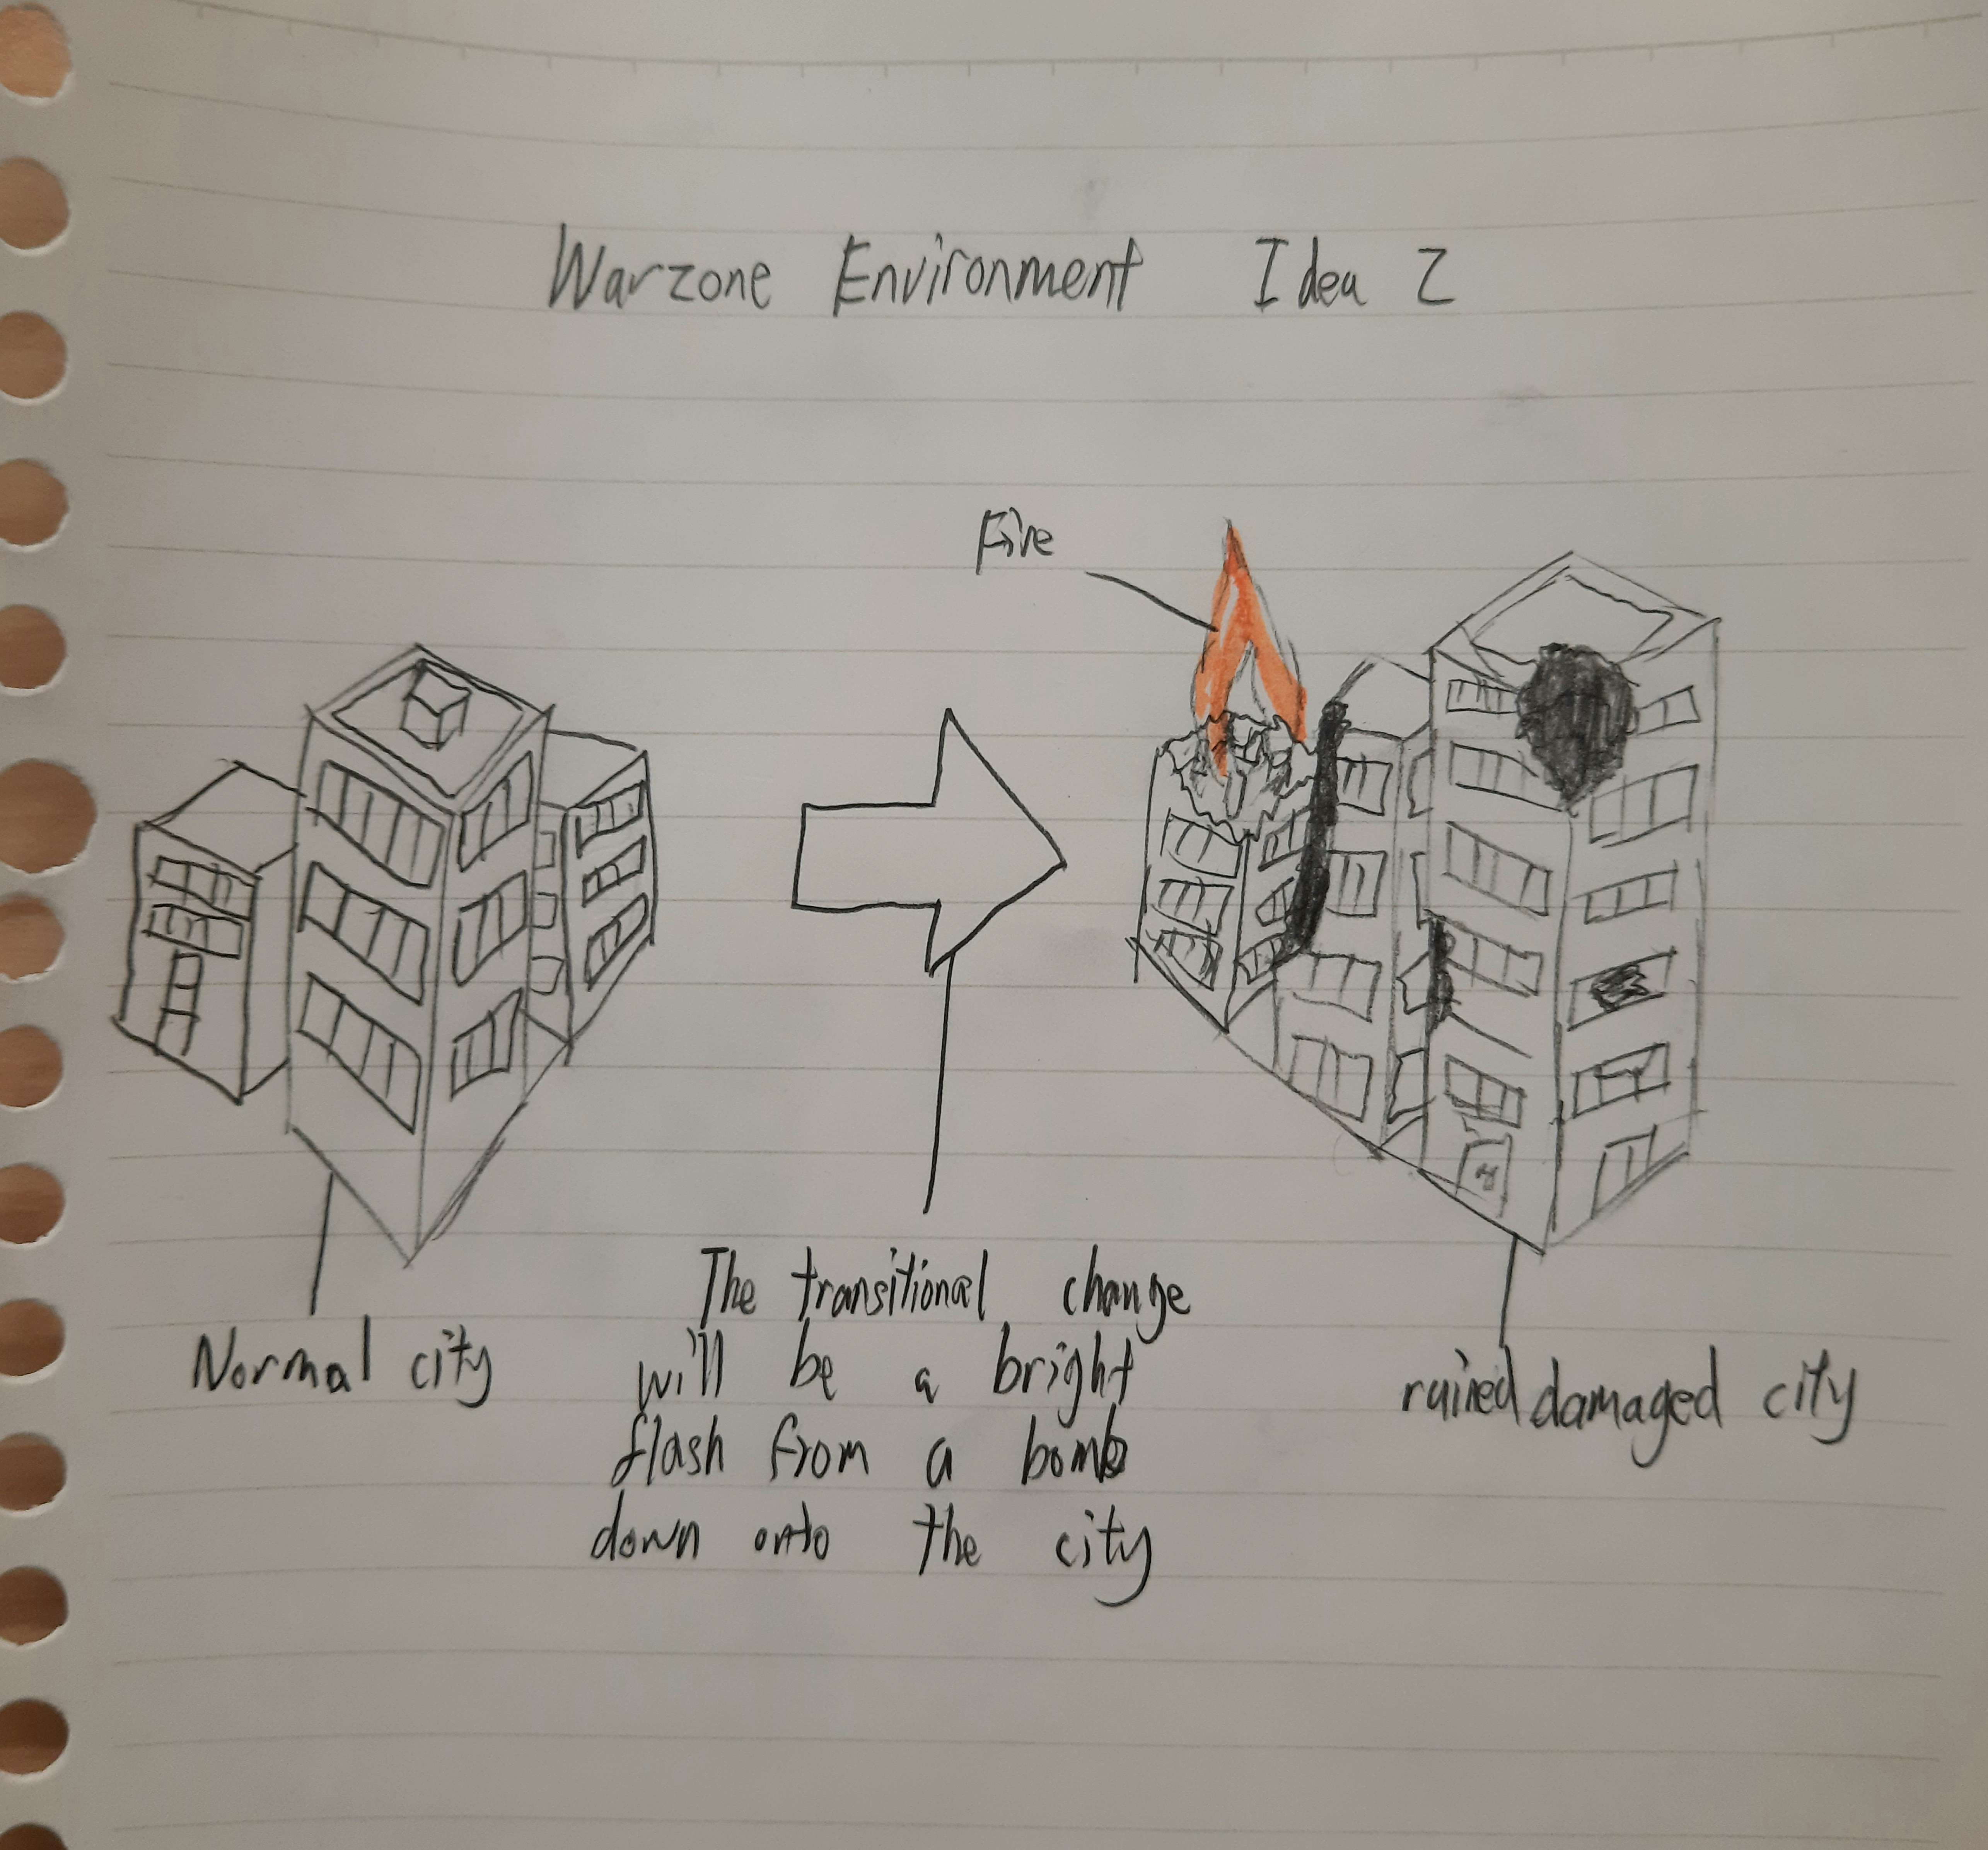 Warzone Environment Idea 2
Fire
Normal city
The transitional change
will be a bright
flash from a bomb
down onto the city
ruined damaged city